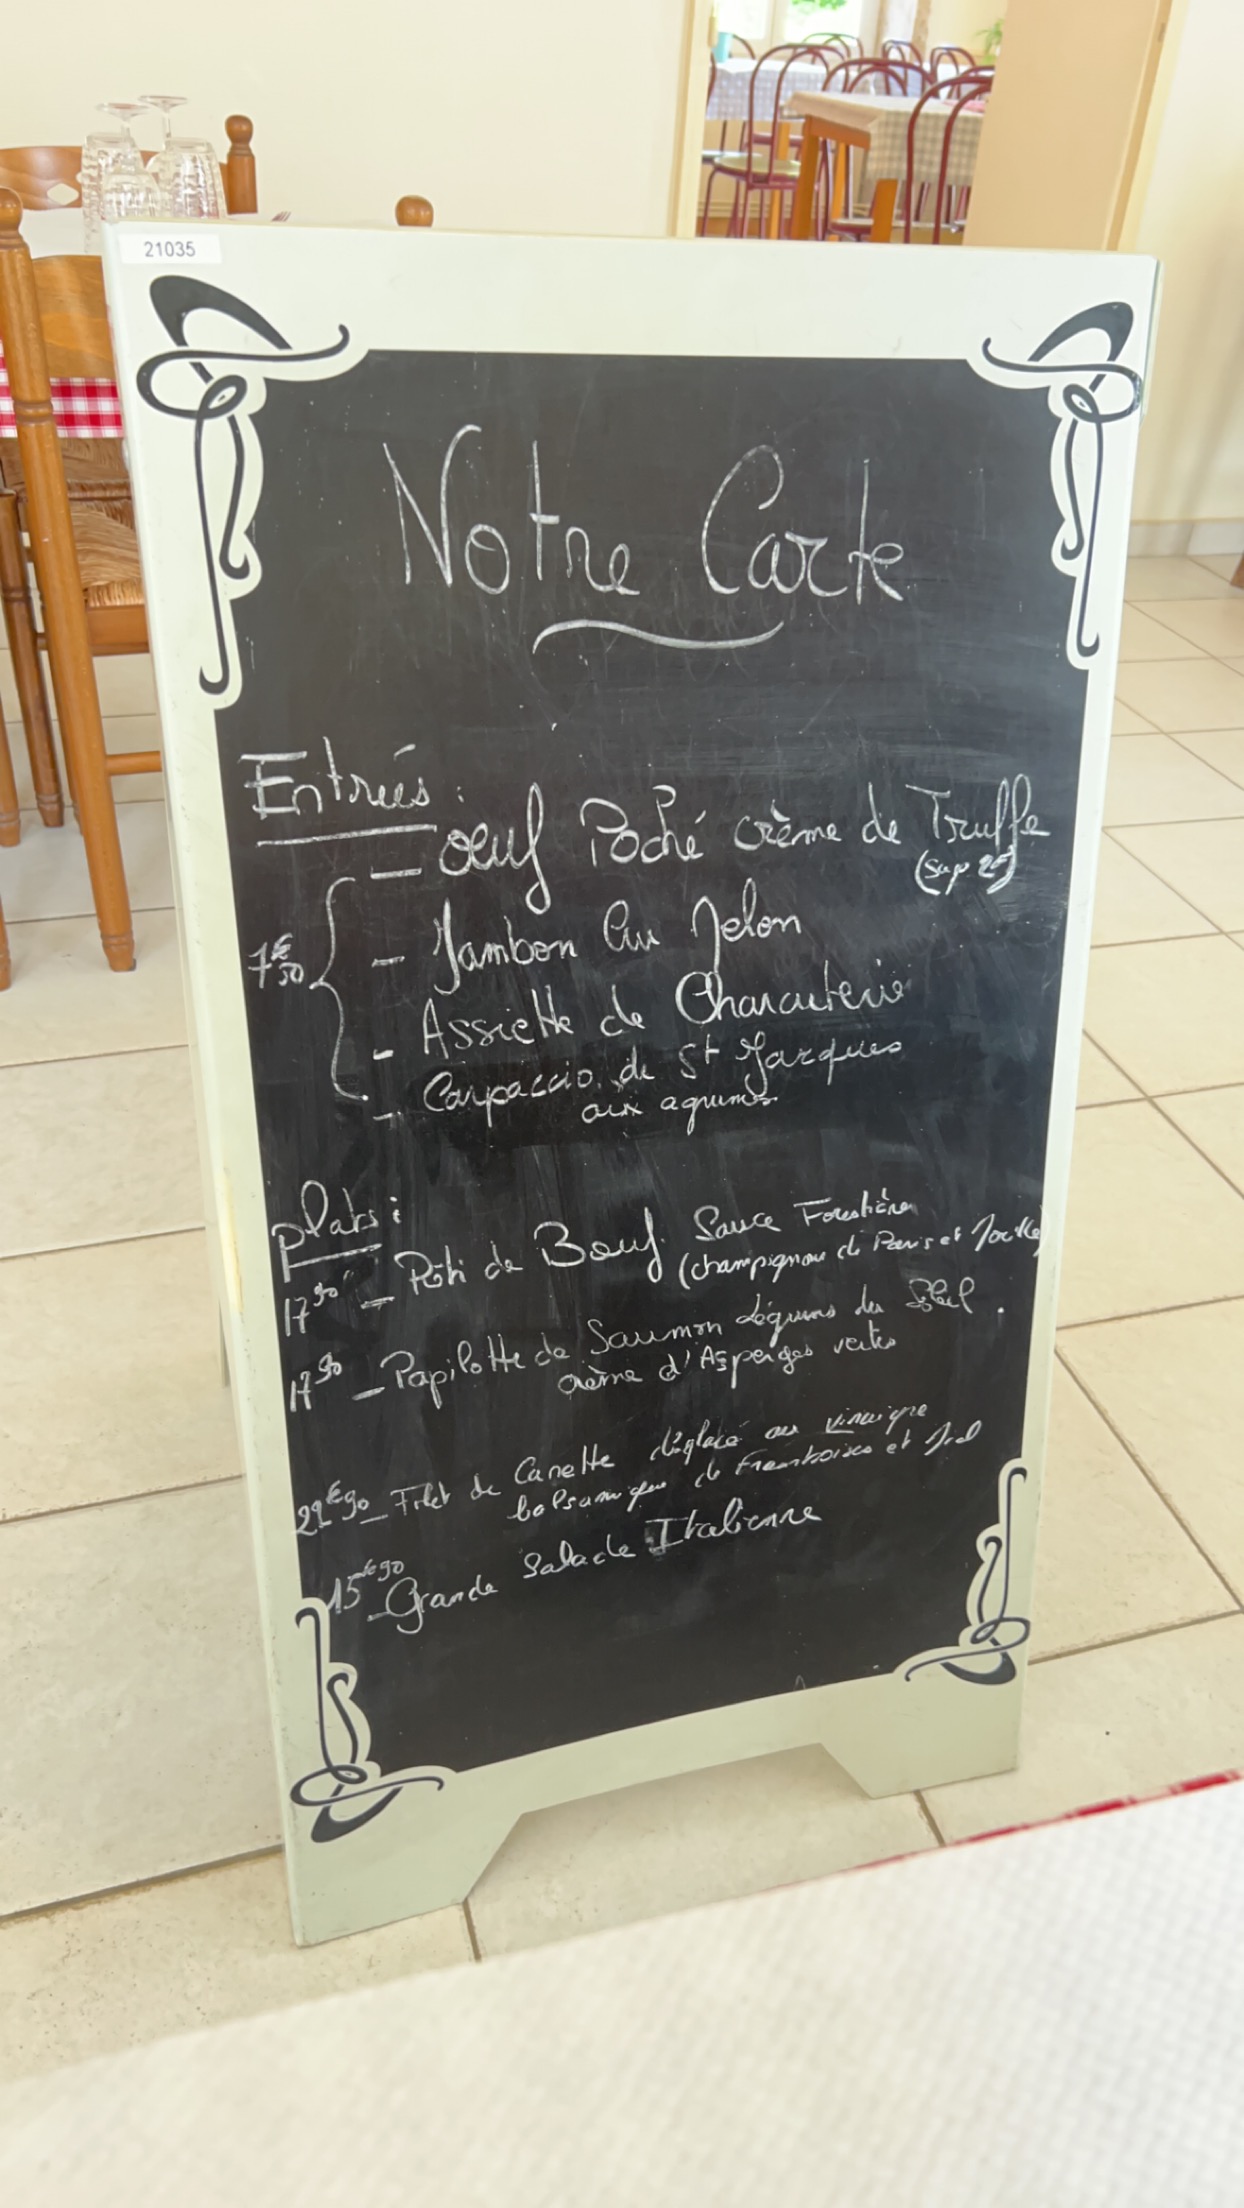 21035
Notre Carte
Entrées :
- œuf Poché crème de Truffe
(sup 2€)
7€50
- Jambon Cru Melon
- Assiette de Charcuterie
- Carpaccio de St Jacques
aux agrumes
plats :
17 90 - Rôti de Boeuf Sauce Forestière
(champignon de Paris et
17 90 - Papilotte de Saumon légumes du Soleil .
crème d'Asperges vertes
22€90 - Filet de Canette déglacé au vinaigre
balsamique de Framboises et Miel
15€90 - Grande Salade Italienne